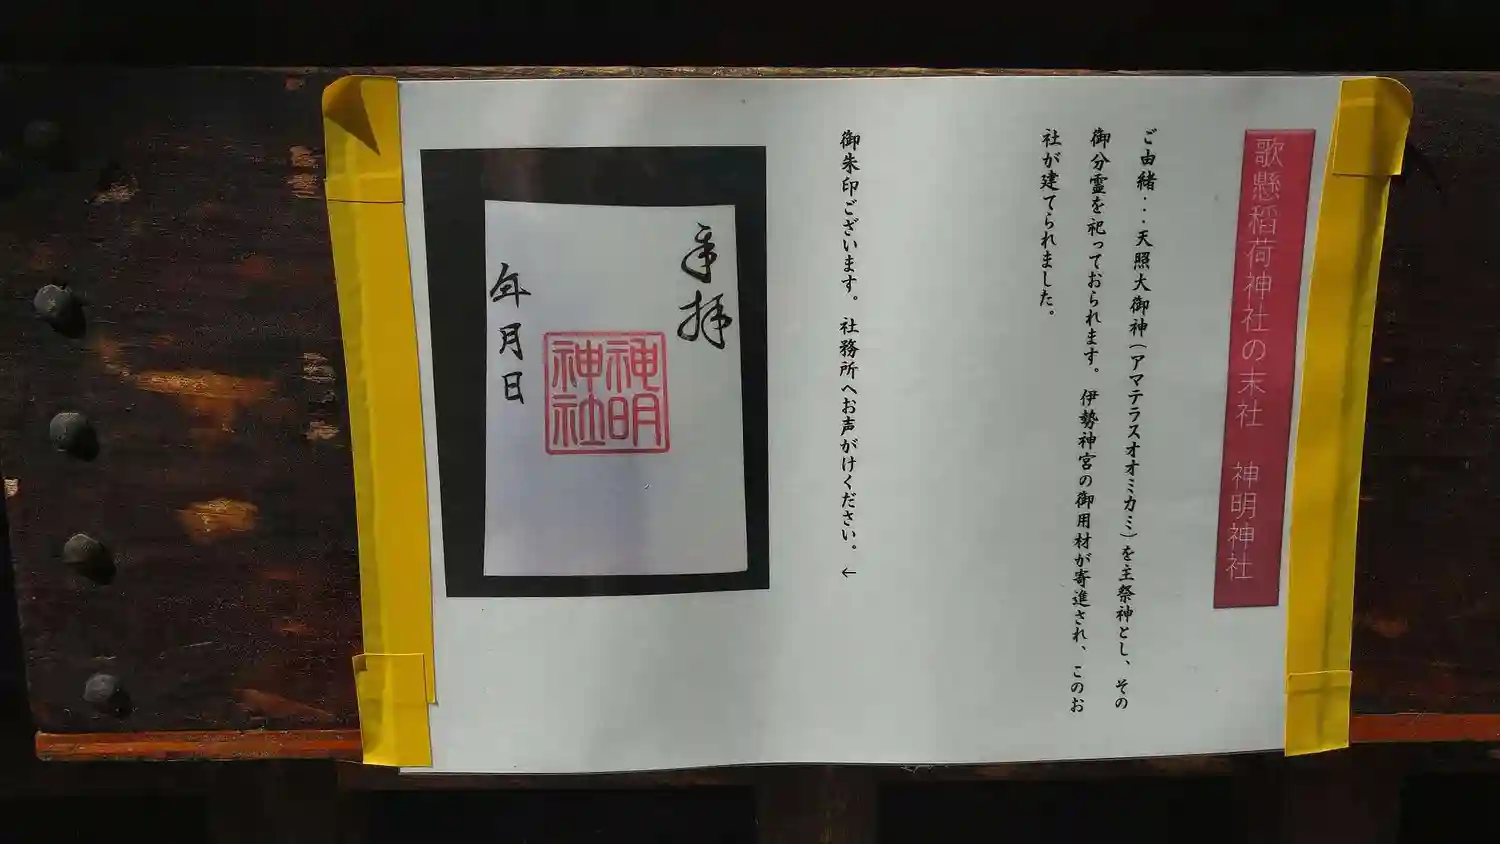 歌懸稲荷神社の末社 神明神社
ご由緒・・・天照大御神(アマテラスオオミカミ)を主祭神とし、その
御分霊を祀っておられます。伊勢神宮の御用材が寄進され、このお
社が建てられました。
御朱印ございます。社務所へお声がけください。←
奉拝
神明
神社
年月日